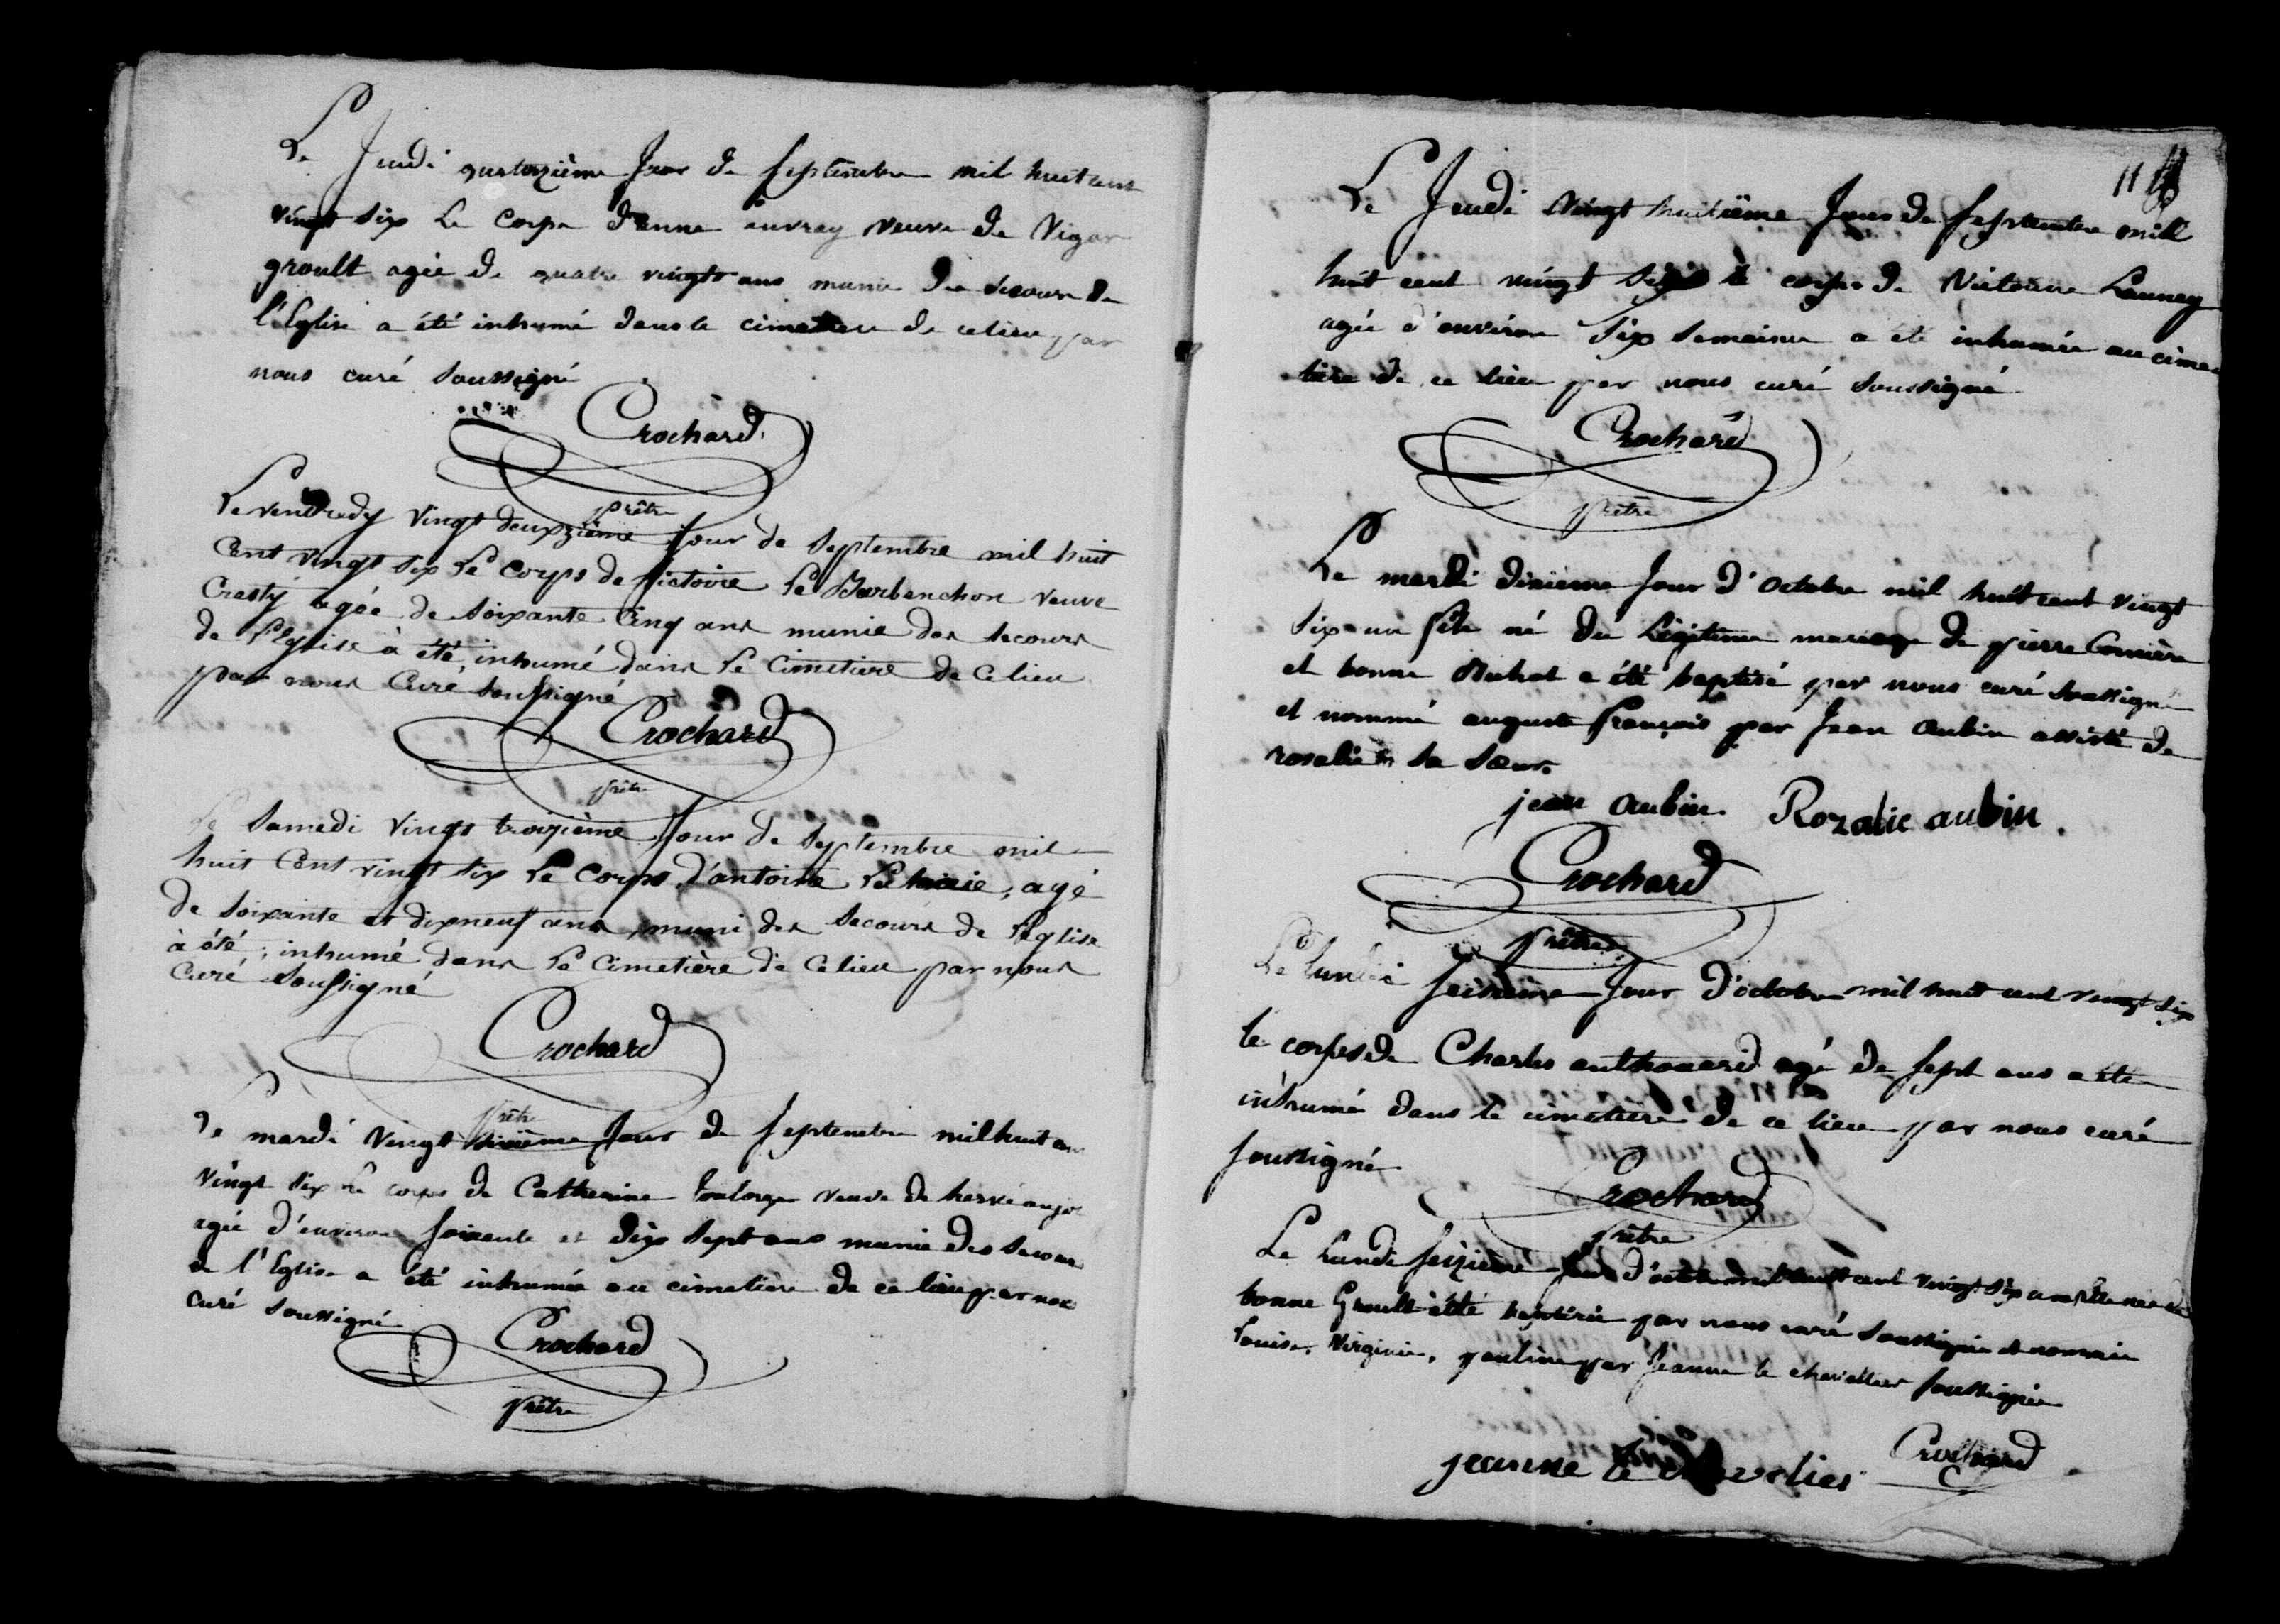 Le Jeudi quatorzième Jour de septembre mil huit cent
vingt six Le corps d'anne auvray veuve de Vigor
groult agée de quatre vingts ans munie des secours de
l'Eglise a été inhumé dans le cimetiere de ce lieu par
nous curé soussigné
Crochard
prêtre
Le vendredy vingt deuxzième jour de septembre mil huit
Cent vingt six Le corps de victoire Le Barbenchon veuve
Cresty agée de soixante Cinq ans munie des secours
de l'Eglise à été, inhumé dans Le Cimetiere de Ce lieu
par nous Curé soussigné
Crochard
prêtre
Le Samedi vingt troizième Jour de septembre mil
huit Cent vingt six Le Corps d'antoine, agé
de soixante et dixneuf ans muni des secours de l'Eglise
à été, inhumé dans Le Cimetière de Ce lieu par nous
Curé soussigné
Crochard
prêtre
Le mardi vingt sixième Jour de septembre mil huit cen
vingt six Le corps de Catherine veuve de hervé
agée d'environ soixante et dix sept ans munie des secours
de l'Eglise a été inhumée au cimetière de ce lieu par nous
curé soussigné
Crochard
prêtre
11
Le Jeudi vingt huitième Jour de septembre mill
huit cent vingt six le corps de Victoire Launey
agée d'environ six semaines a été inhumée au cime
tière de ce lieu par nous curé soussigné
Crochard
prêtre
Le mardi dixième Jour d'octobre mil huit cent vingt
six un fils né du Légitime mariage de pierre
et bonne a été baptisé par nous curé soussigné
et nommé auguste françois par Jean Aubin assisté de
rosalie sa sœur
jean aubin. Rozalie aubin.
Crochard
prêtre
Le lundi seizième Jour d'octobre mil huit cent vingt six
le corps de Charles anthouard agé de sept ans a été
inhumé dans le cimetiere de ce lieu par nous curé
soussigné
Crochard
prêtre
Le Lundi seizième jour d'octobre mil huit cent vingt six une fille née de
bonne Groult a été baptisée par nous curé soussigné et nommée
Louise, Virginie, pauline par Jeanne le chevallier soussignée
jeanne le chevalier Crochard